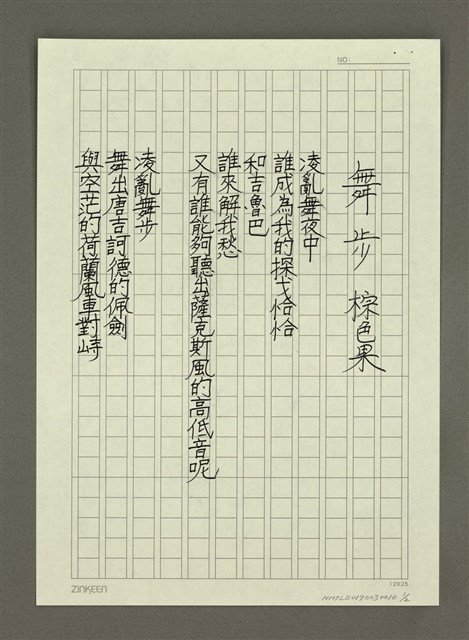 NO:
舞步 棕色果
凌亂舞夜中
誰成為我的探戈恰恰
和吉魯巴
誰來解我愁
又有誰能夠聽出薩克斯風的高低音呢
凌亂舞步
舞出唐吉訶德的佩劍
與空茫的荷蘭風車對峙
ZINKEEN
12X25
NMTL20190030010 1/2